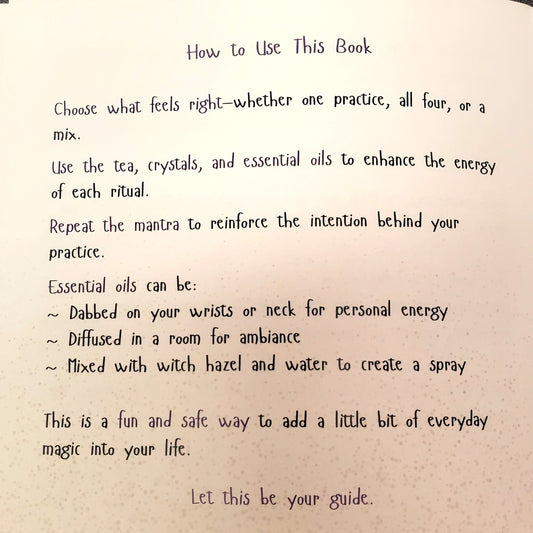 How to Use This Book
Choose what feels right—whether one practice, all four, or a
mix.
Use the tea, crystals, and essential oils to enhance the energy
of each ritual.
Repeat the mantra to reinforce the intention behind your
practice.
Essential oils can be:
~ Dabbed on your wrists or neck for personal energy
~ Diffused in a room for ambiance
~ Mixed with witch hazel and water to create a spray
This is a fun and safe way to add a little bit of everyday
magic into your life.
Let this be your guide.